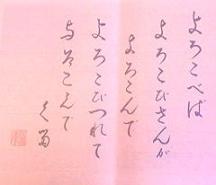 よろこべば
よろこびさんが
よろこんで
よろこびつれて
よろこんで
くる